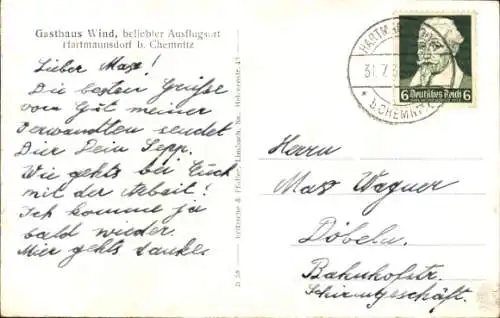 Gasthaus Wind, beliebter Ausflugsort
Hartmannsdorf b. Chemnitz
Lieber Max!
Die besten Grüße
vom Gut meiner
Verwandten sendet
Dier Dein Sepp.
Wie gehts bei Euch
mit der Arbeit!
Ich komme ja
bald wieder.
Mier gehts danke.
D 59
31.7.3
b. CHEMNITZ
Deutsches Reich
6 6
Herrn
Max Wagner
Döbeln.
Bahnhofstr.
Schirmgeschäft.